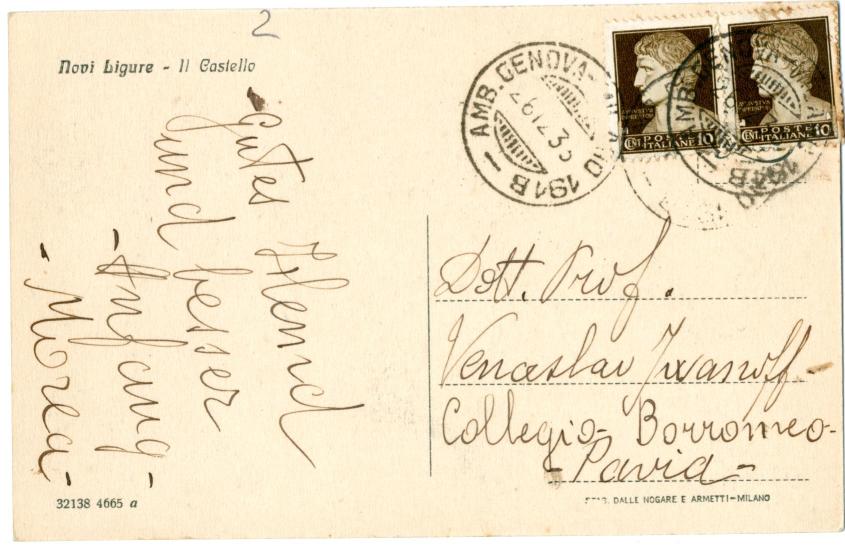 2
Novi Ligure - Il Castello
- Gutes Hend
und besser
- Anfang -
- Morea -
AMB. GENOVA-MILANO 191B
26 12 35
POSTE ITALIANE
CENT. 10
POSTE ITALIANE
CENT. 10
Dott. Prof.
Venceslao Iwanoff-
Collegio- Borromeo-
-Pavia-
32138 4665 a
STAB. DALLE NOGARE E ARMETTI-MILANO